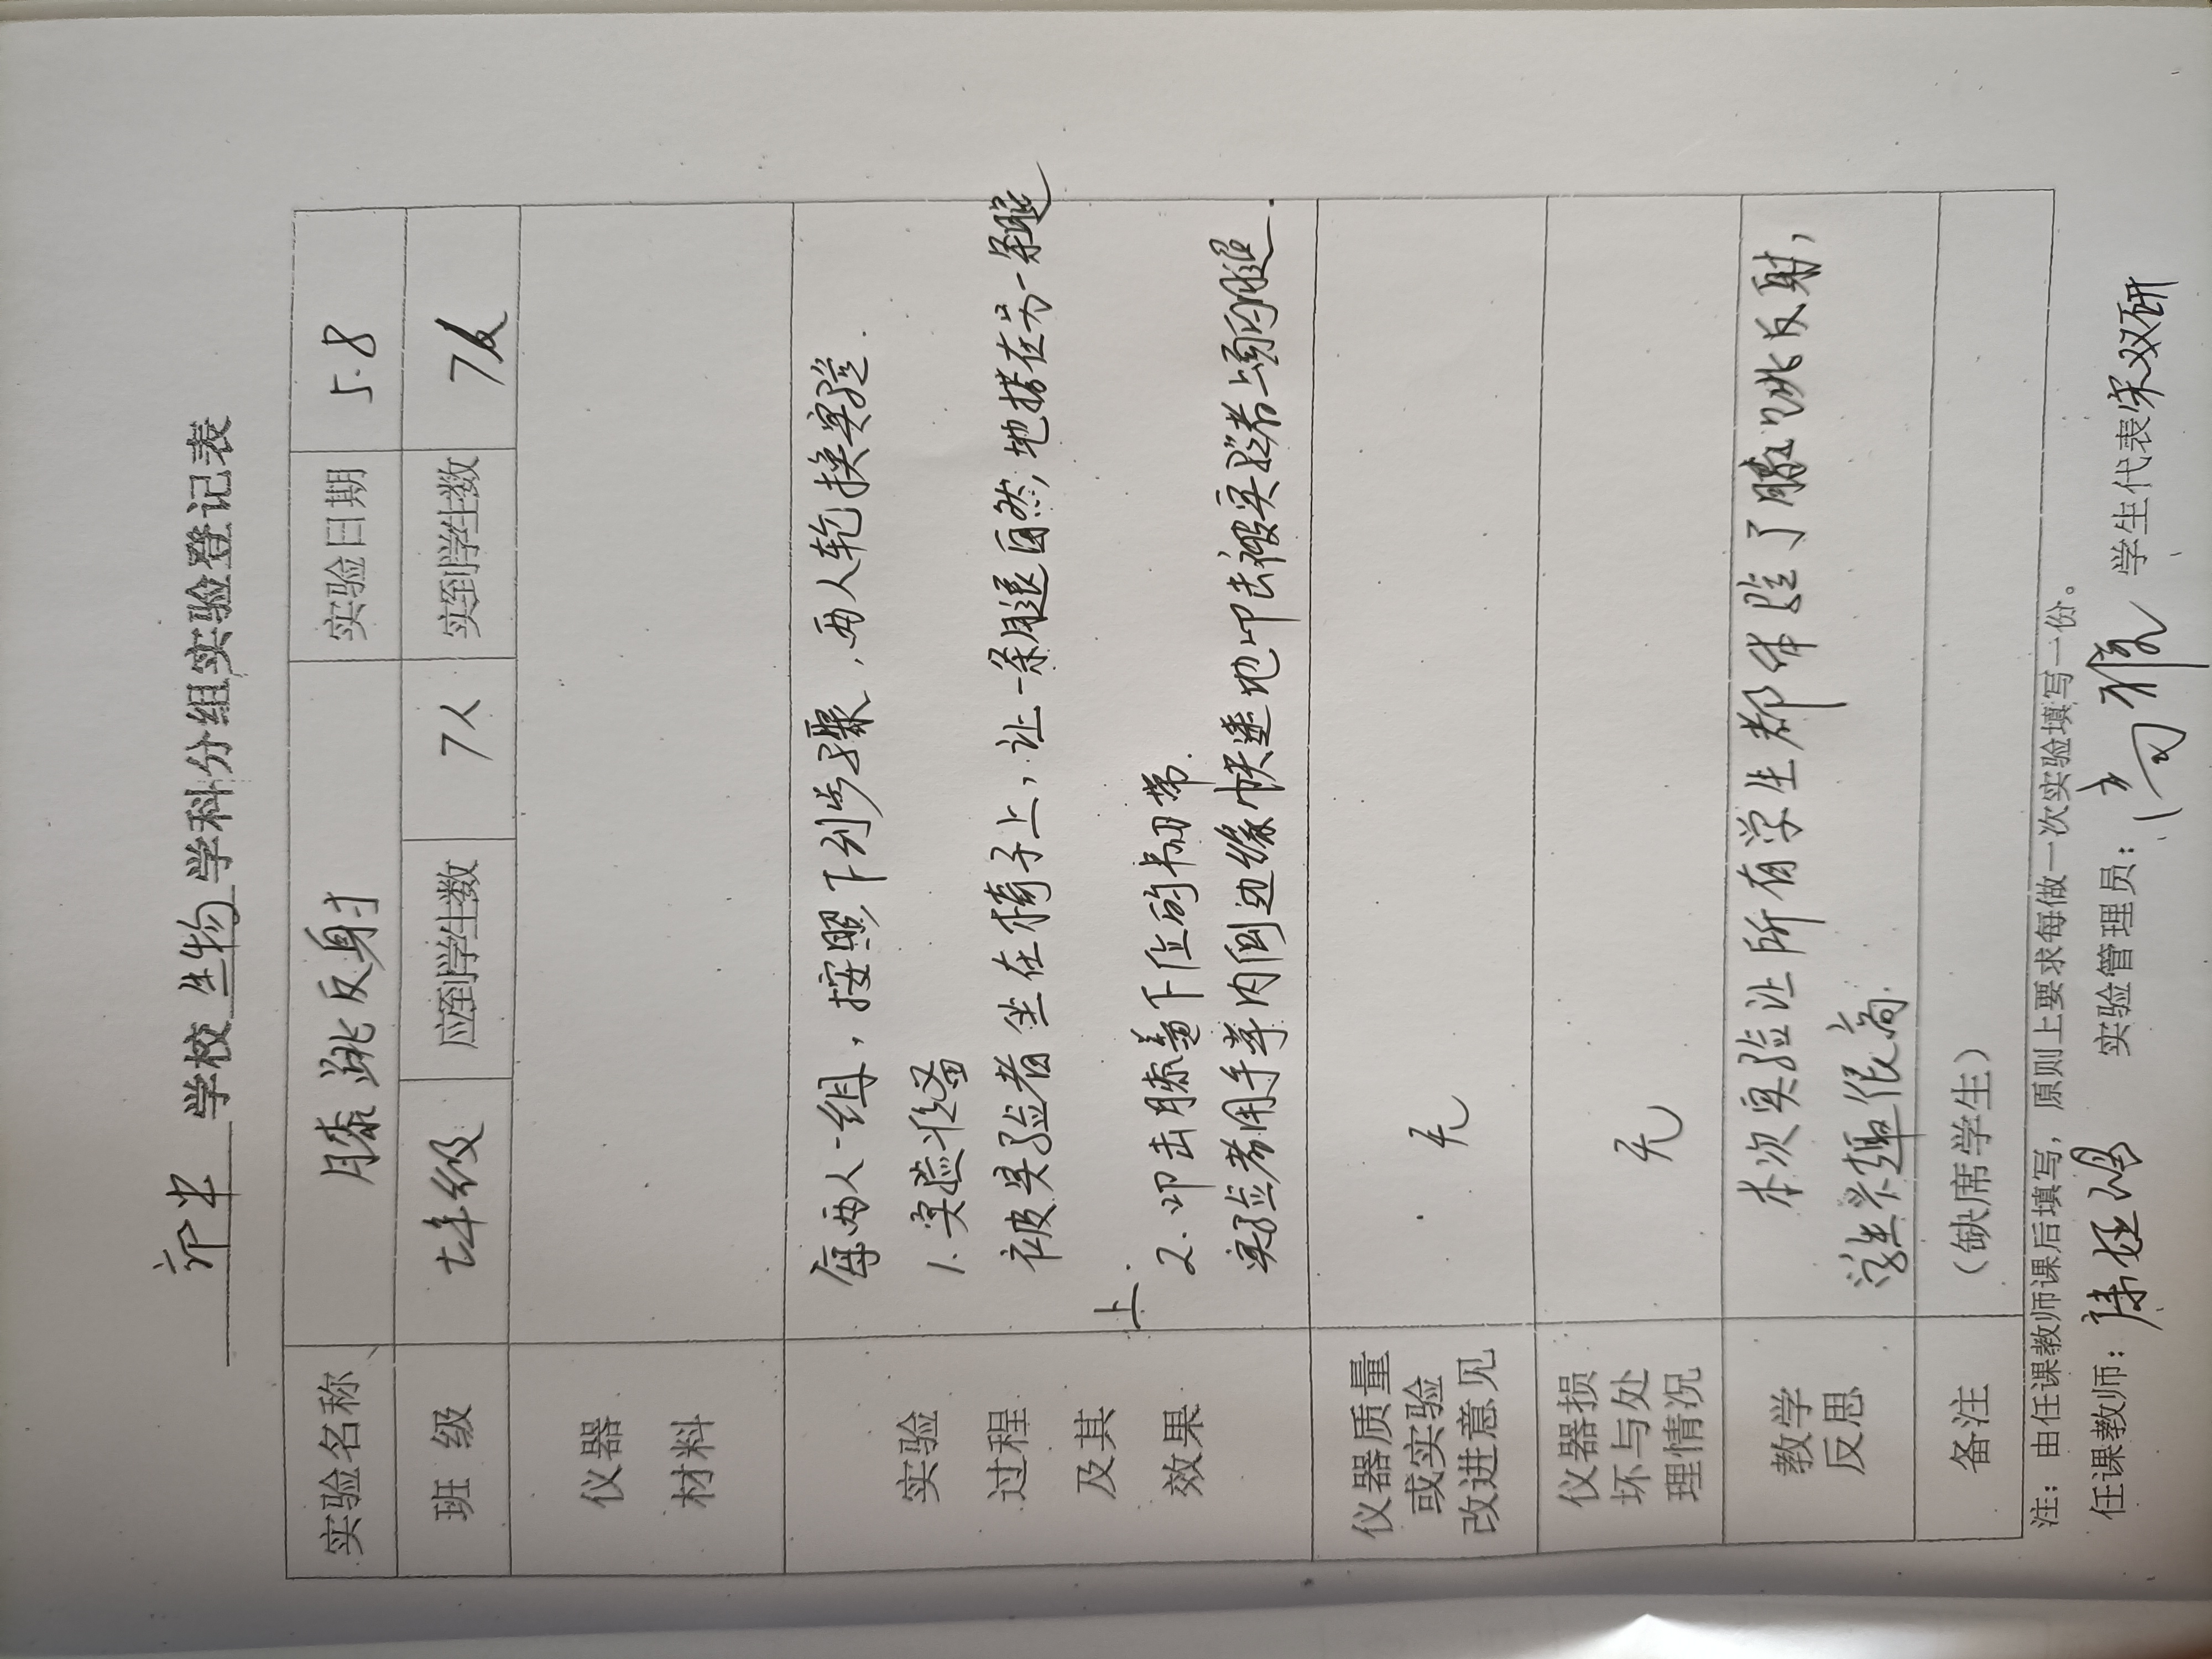 学校 生物 学科分组实验登记表
实验名称 膝跳反射 实验日期 5.8
班 级 七年级 应到学生数 7人 实到学生数 7人
仪器
材料
实验
过程
及其
效果
每两人一组，按照下列步骤，两人轮换实验.
1.实验准备
被实验者坐在椅子上，让一条腿自然地搭在另一条腿
上.
2.叩击膝盖下位的韧带.
实验者用手掌内侧边缘快速地叩击被实验者上面的腿.
仪器质量
或实验
改进意见
无
仪器损
坏与处
理情况
无
教学
反思
本次实验让所有学生都体验了膝跳反射，
学生兴趣很高.
备注 （缺席学生）
注：由任课教师课后填写，原则上要求每做一次实验填写一份。
任课教师： 实验管理员： 学生代表 宋双研